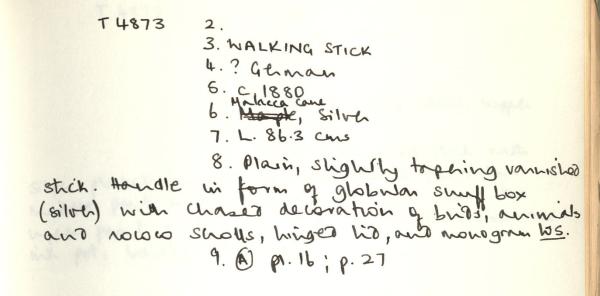 T 4873 2.
3. WALKING STICK
4. ? German
5. C. 1880
Malacca cane
6. Maple, Silver
7. L. 86.3 cms
8. Plain, slightly tapering varnished
stick. Handle in form of globular snuff box
(silver) with chased decoration of birds, animals
and rococo scrolls, hinged lid, and monogram WS.
9. (A) pl. 16 ; p. 27